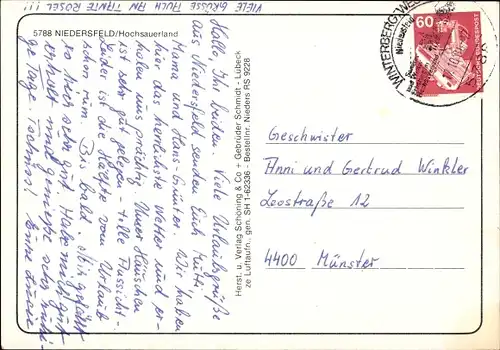 VIELE GRÜSSE AUCH AN TANTE ROSEL!!!
5788 NIEDERSFELD/Hochsauerland
Hallo, Ihr beiden. Viele Urlaubsgrüße
aus Niedersfeld senden Euch Mutti
Mama und Hans-Günter. Wir haben
hier das herrlichste Wetter und er-
holen uns prächtig. Unser Häuschen
ist sehr gut gelegen - tolle Aussicht -
Leider ist die Hälfte vom Urlaub
schon rum. Bis bald. Mir gefällt
es hier sehr gut. Habe mich gut
erholt und genieße sehr
Tage. Tschüss! Eure
Herst. u. Verlag Schöning & Co + Gebrüder Schmidt - Lübeck
ze Luftaufn., gen. SH 1-62336 - Bestellnr. Nieders RS 9228
WINTERBERG
Niedersfeld
60
DEUTSCHE BUNDESPOST
Geschwister
Anni und Gertrud Winkler
Leostraße 12
4400 Münster